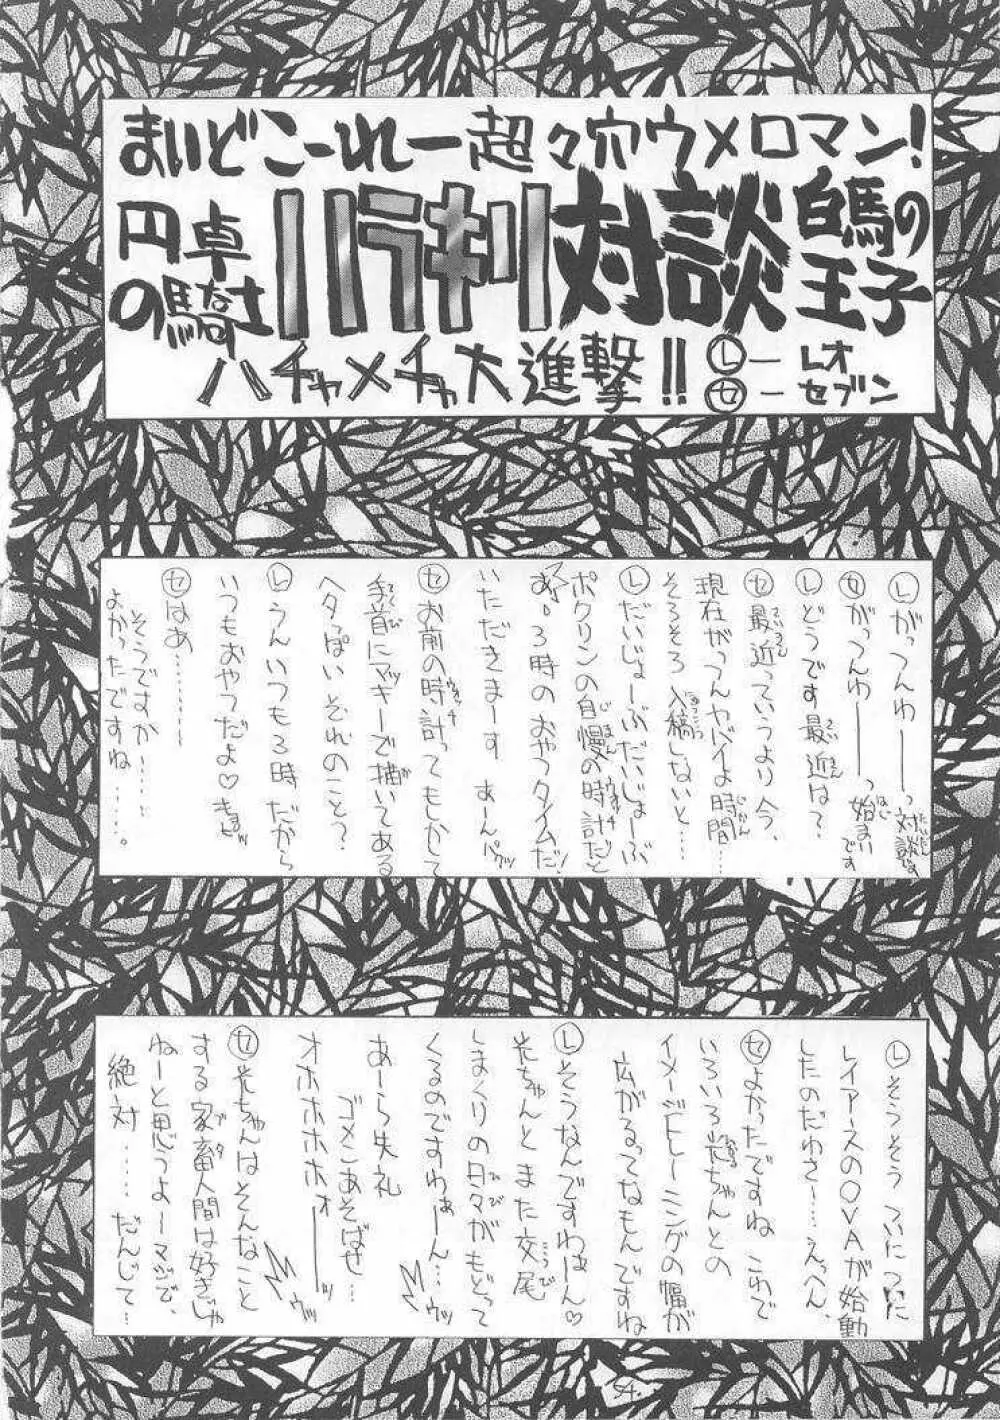 まいどこーれー超々穴ウメロマン!
円卓の騎士なさ
ハラキリ対談
白馬の王子
ハチャメチャ大進撃!!
レ―レオ
セ―セブン
レ がっつんわ――っ対談です
セ がっつんわ――っ始まいです
レ どうです最近は?
セ 最近っていうより今、
現在がっつんヤバイよ時間…
そろそろ入稿しないと…
レ だいじょーぶだいじょーぶ
ボクリンの自慢の時計だと
あ、3時のおやつタイムだ!
いただきまーす あーんパクッ
セ お前の時計ってもかして
手首にマッキーで描いてある
ヘタっぽいそれのこと?
レ うんいつも3時だから
いつもおやつだよ♡
セ はあ………
そうですか……
よかったですね……。
レ そうそう ついについに
レイアースのOVAが始動
したのだわさー…えっへん
セ よかったですね これで
いろいろ光ちゃんとの
イメージトレーニングの幅が
広がるってなもんですね
レ そうなんですわぁーん♡
光ちゃんとまた交尾
しまくりの日々がもどって
くるのですわぁーん…ウッ
あーら失礼
ゴメンあそばせ…
オホホホホォ――ッ
セ 光ちゃんはそんなこと
する家畜人間は好きじゃ
ねーと思うよーマジで、
絶対……だんじて…